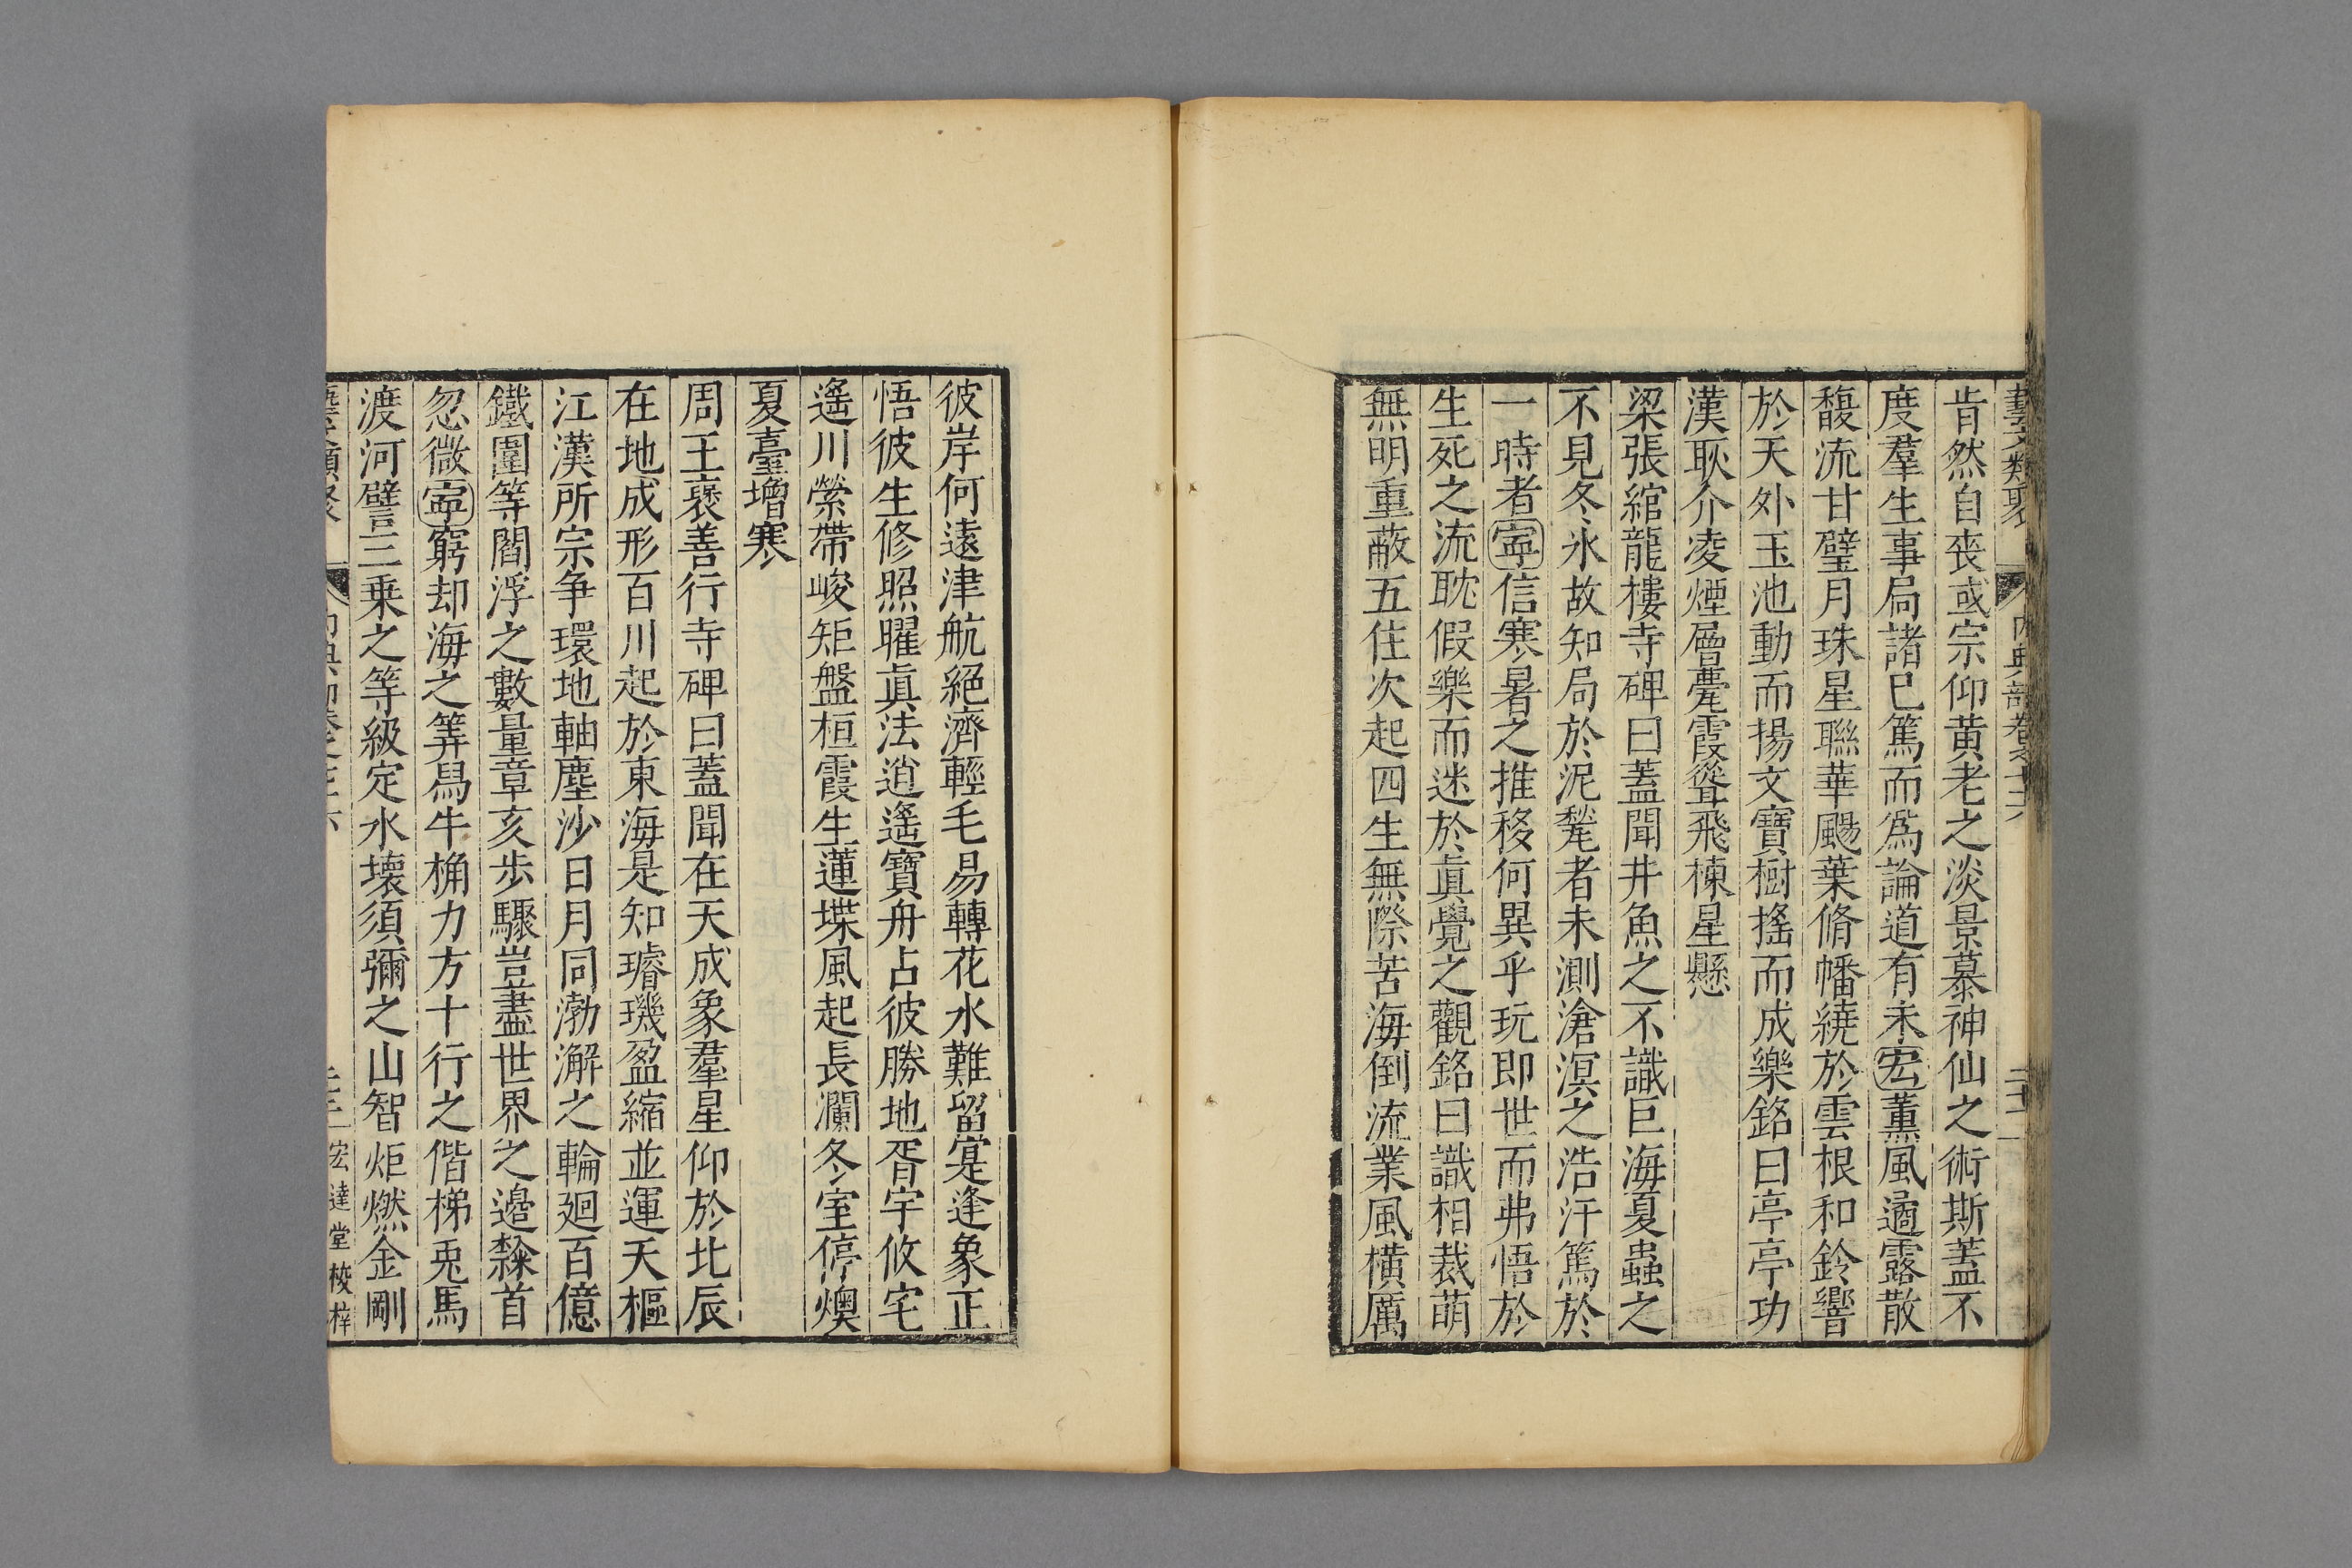 藝文類聚 內典部卷七十六 二十二
肯然自喪或宗仰黄老之淡景慕神仙之術斯蓋不
度羣生事局諸已篤而爲論道有未宏薰風遹露散
馥流甘璧月珠星聯華颺葉脩幡繞於雲根和鈴響
於天外玉池動而揚文寶樹搖而成樂銘曰亭亭功
漢耿介凌煙層甍霞聳飛棟星懸
梁張綰龍樓寺碑曰蓋聞井魚之不識巨海夏蟲之
不見冬氷故知局於泥甃者未測滄溟之浩汗篤於
一時者寧信寒暑之推移何異乎玩即世而弗悟於
生死之流耽假樂而迷於眞覺之觀銘曰識相裁萌
無明重蔽五住次起四生無際苦海倒流業風橫厲
彼岸何遠津航絕濟輕毛易轉花水難留寔逢象正
悟彼生修照曜眞法逍遙寶舟占彼勝地胥宇攸宅
遙川縈帶峻矩盤桓霞生蓮堞風起長瀾冬室停燠
夏臺增寒
周王褒善行寺碑曰蓋聞在天成象羣星仰於北辰
在地成形百川起於東海是知璿璣盈縮並運天樞
江漢所宗争環地軸塵沙日月同渤澥之輪廻百億
鐵圍等閻浮之數量章亥步驟豈盡世界之邊黐首
忽微寧窮却海之筭舄牛桷力方十行之偕梯兎馬
渡河譬三乗之等級定水壊須彌之山智炬燃金剛
宏達堂校梓